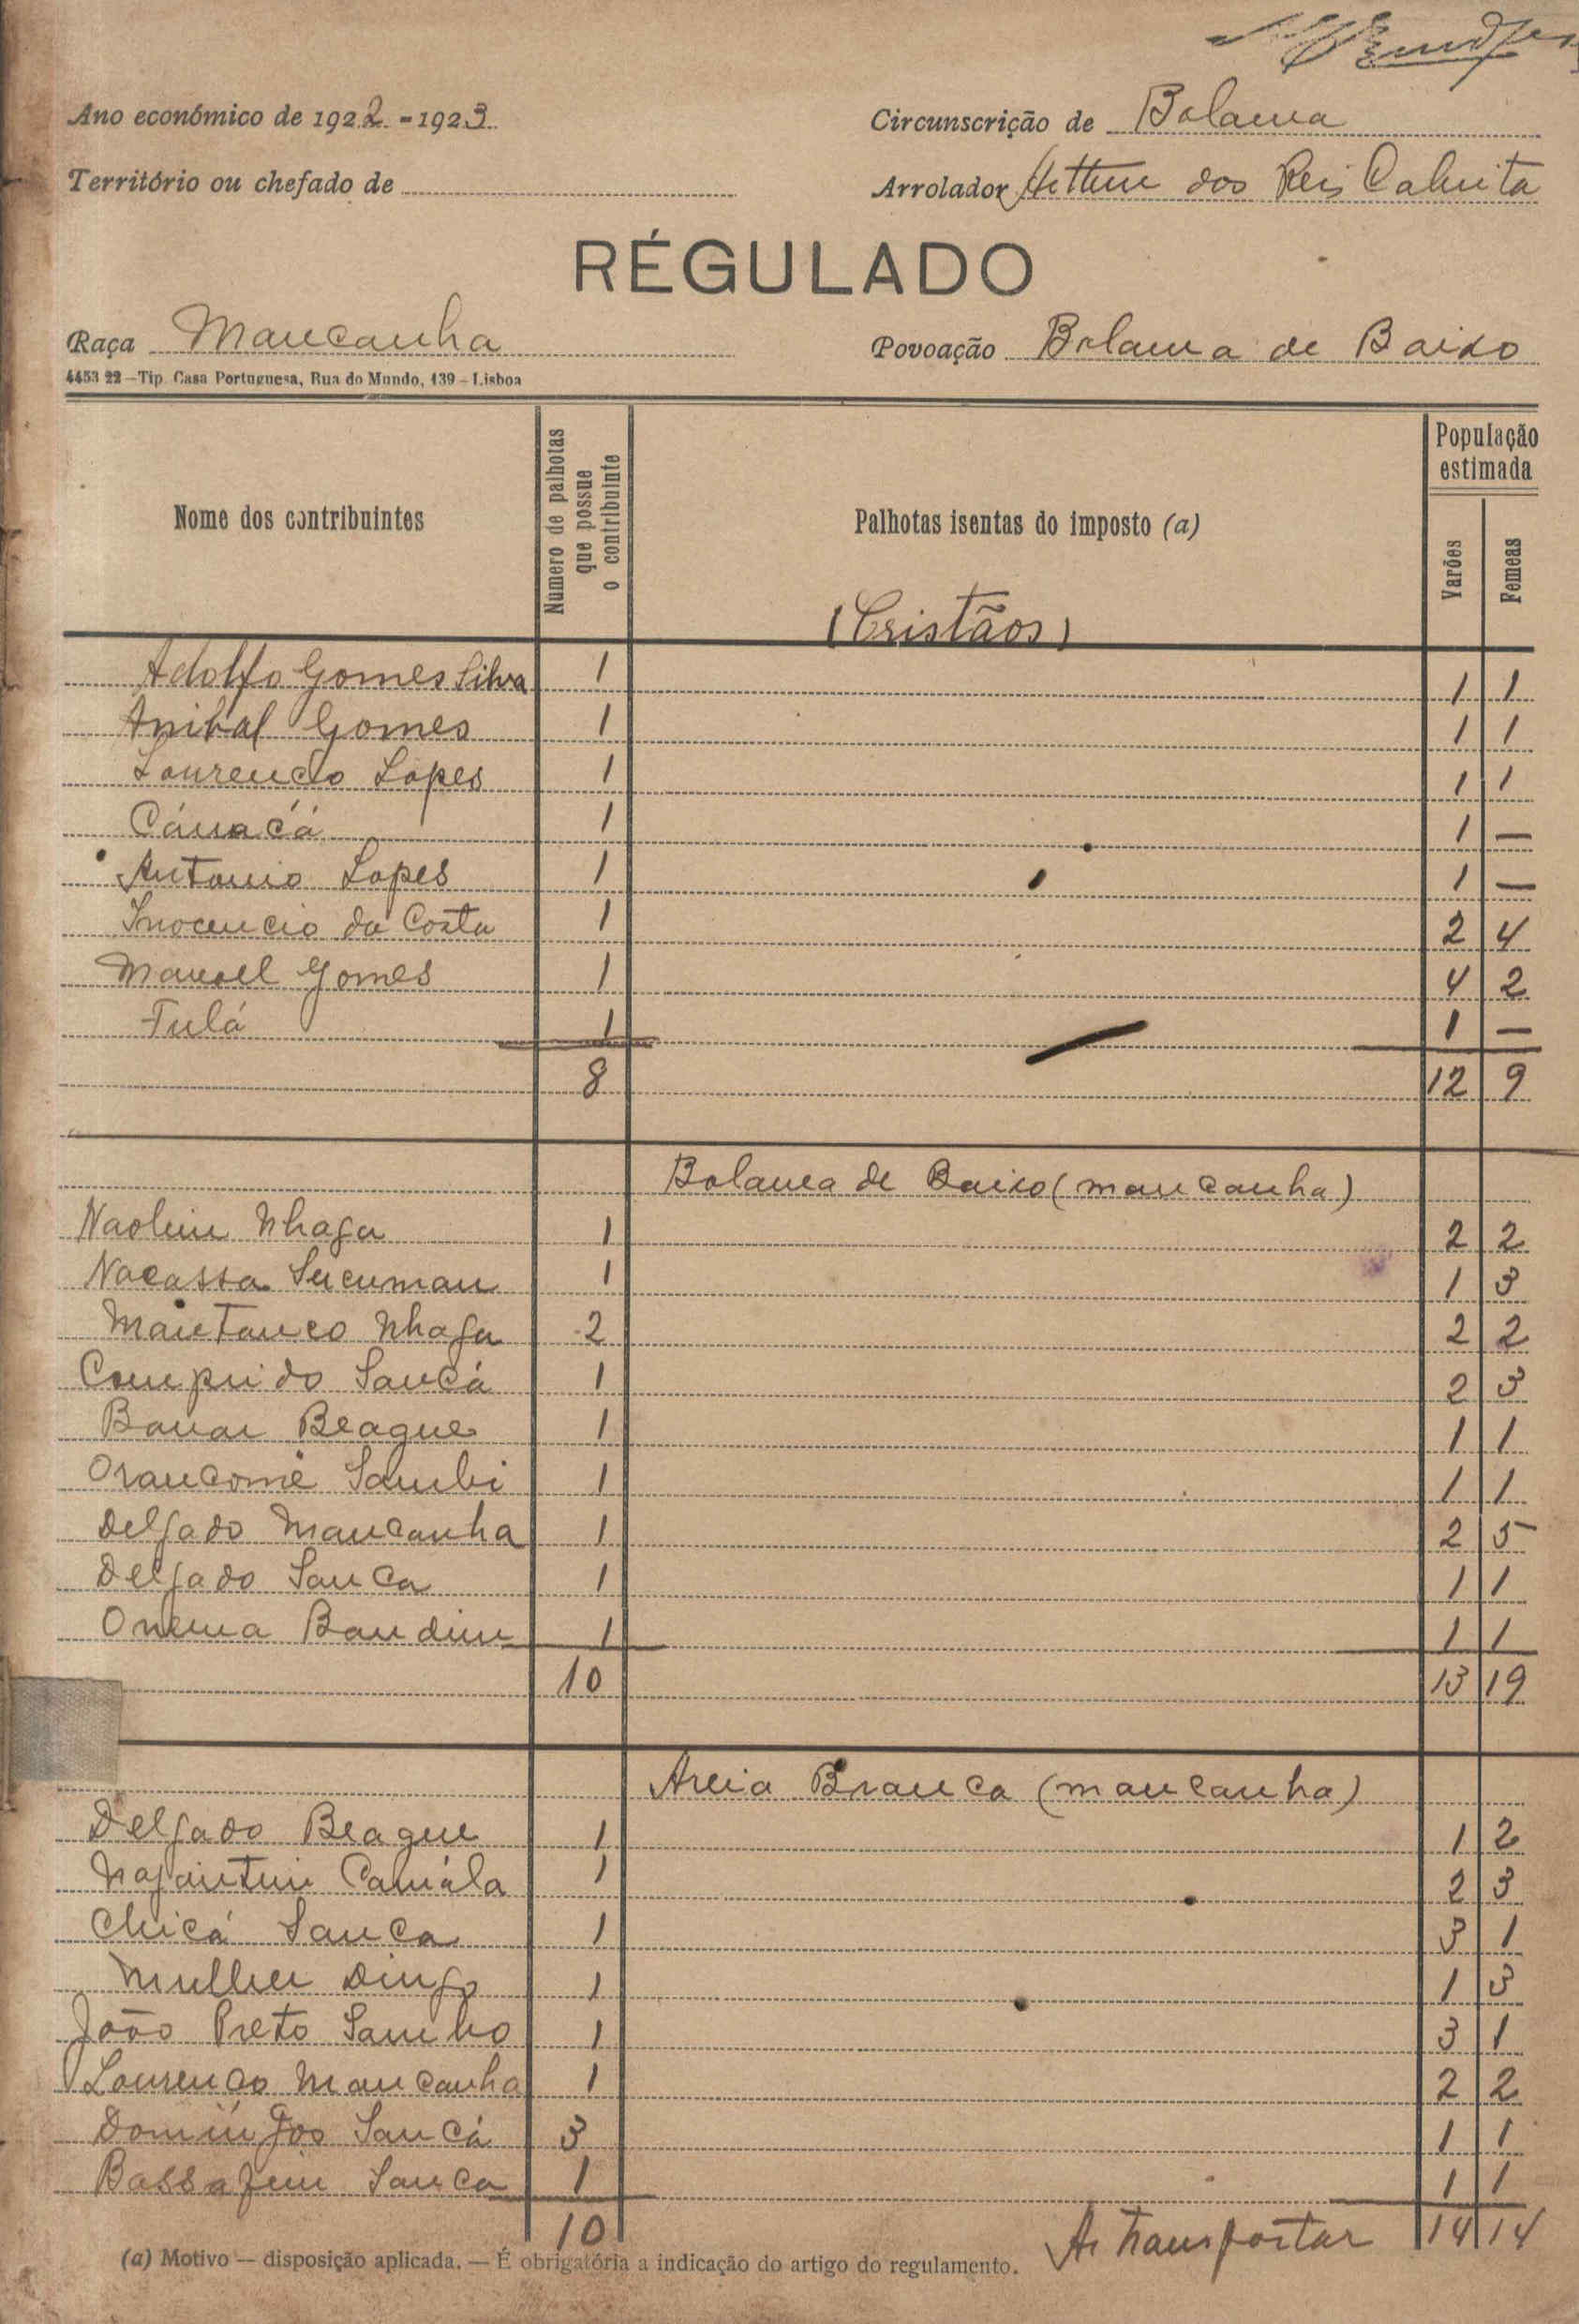 Ano económico de 1922-1923
Circunscrição de Bolama
Território ou chefado de
Arrolador dos Reis
RÉGULADO
Raça Mancanha
Povoação Bolama de Baixo
4453 22-Tip. Casa Portuguesa, Rua do Mundo, 139-Lisboa
Nome dos contribuintes
Número de palhotas que possue o contribuinte
Palhotas isentas do imposto (a)
População estimada
Varões
Femeas
(Cristãos)
Adolfo Gomes Silva 1 1 1
Anibal Gomes 1 1 1
Lourenço Lopes 1 1 1
Cánacá 1 1 —
Antonio Lopes 1 1 —
Inocencio da Costa 1 2 4
Manoel Gomes 1 4 2
Fulá 1 1 —
8 12 9
Bolama de Baixo (mancanha)
Naolim Nhaga 1 2 2
Nacassa Sucuman 1 1 3
Mantanco Nhaga 2 2 2
Comprido Sancá 1 2 3
Banar Beague 1 1 1
Orancomé Sambi 1 1 1
Delgado Mancanha 1 2 5
Delgado Sanca 1 1 1
Onema Bandim 1 1 1
10 13 19
Areia Branca (mancanha)
Delgado Beague 1 1 2
1 2 3
Chicá Sanca 1 3 1
Mulher Dingo 1 1 3
João Preto Sambo 1 3 1
Lourenço Mancanha 1 2 2
Domingos Sancá 3 1 1
Bassafim Sanca 1 1 1
10 A transportar 14 14
(a) Motivo — disposição aplicada. — É obrigatória a indicação do artigo do regulamento.